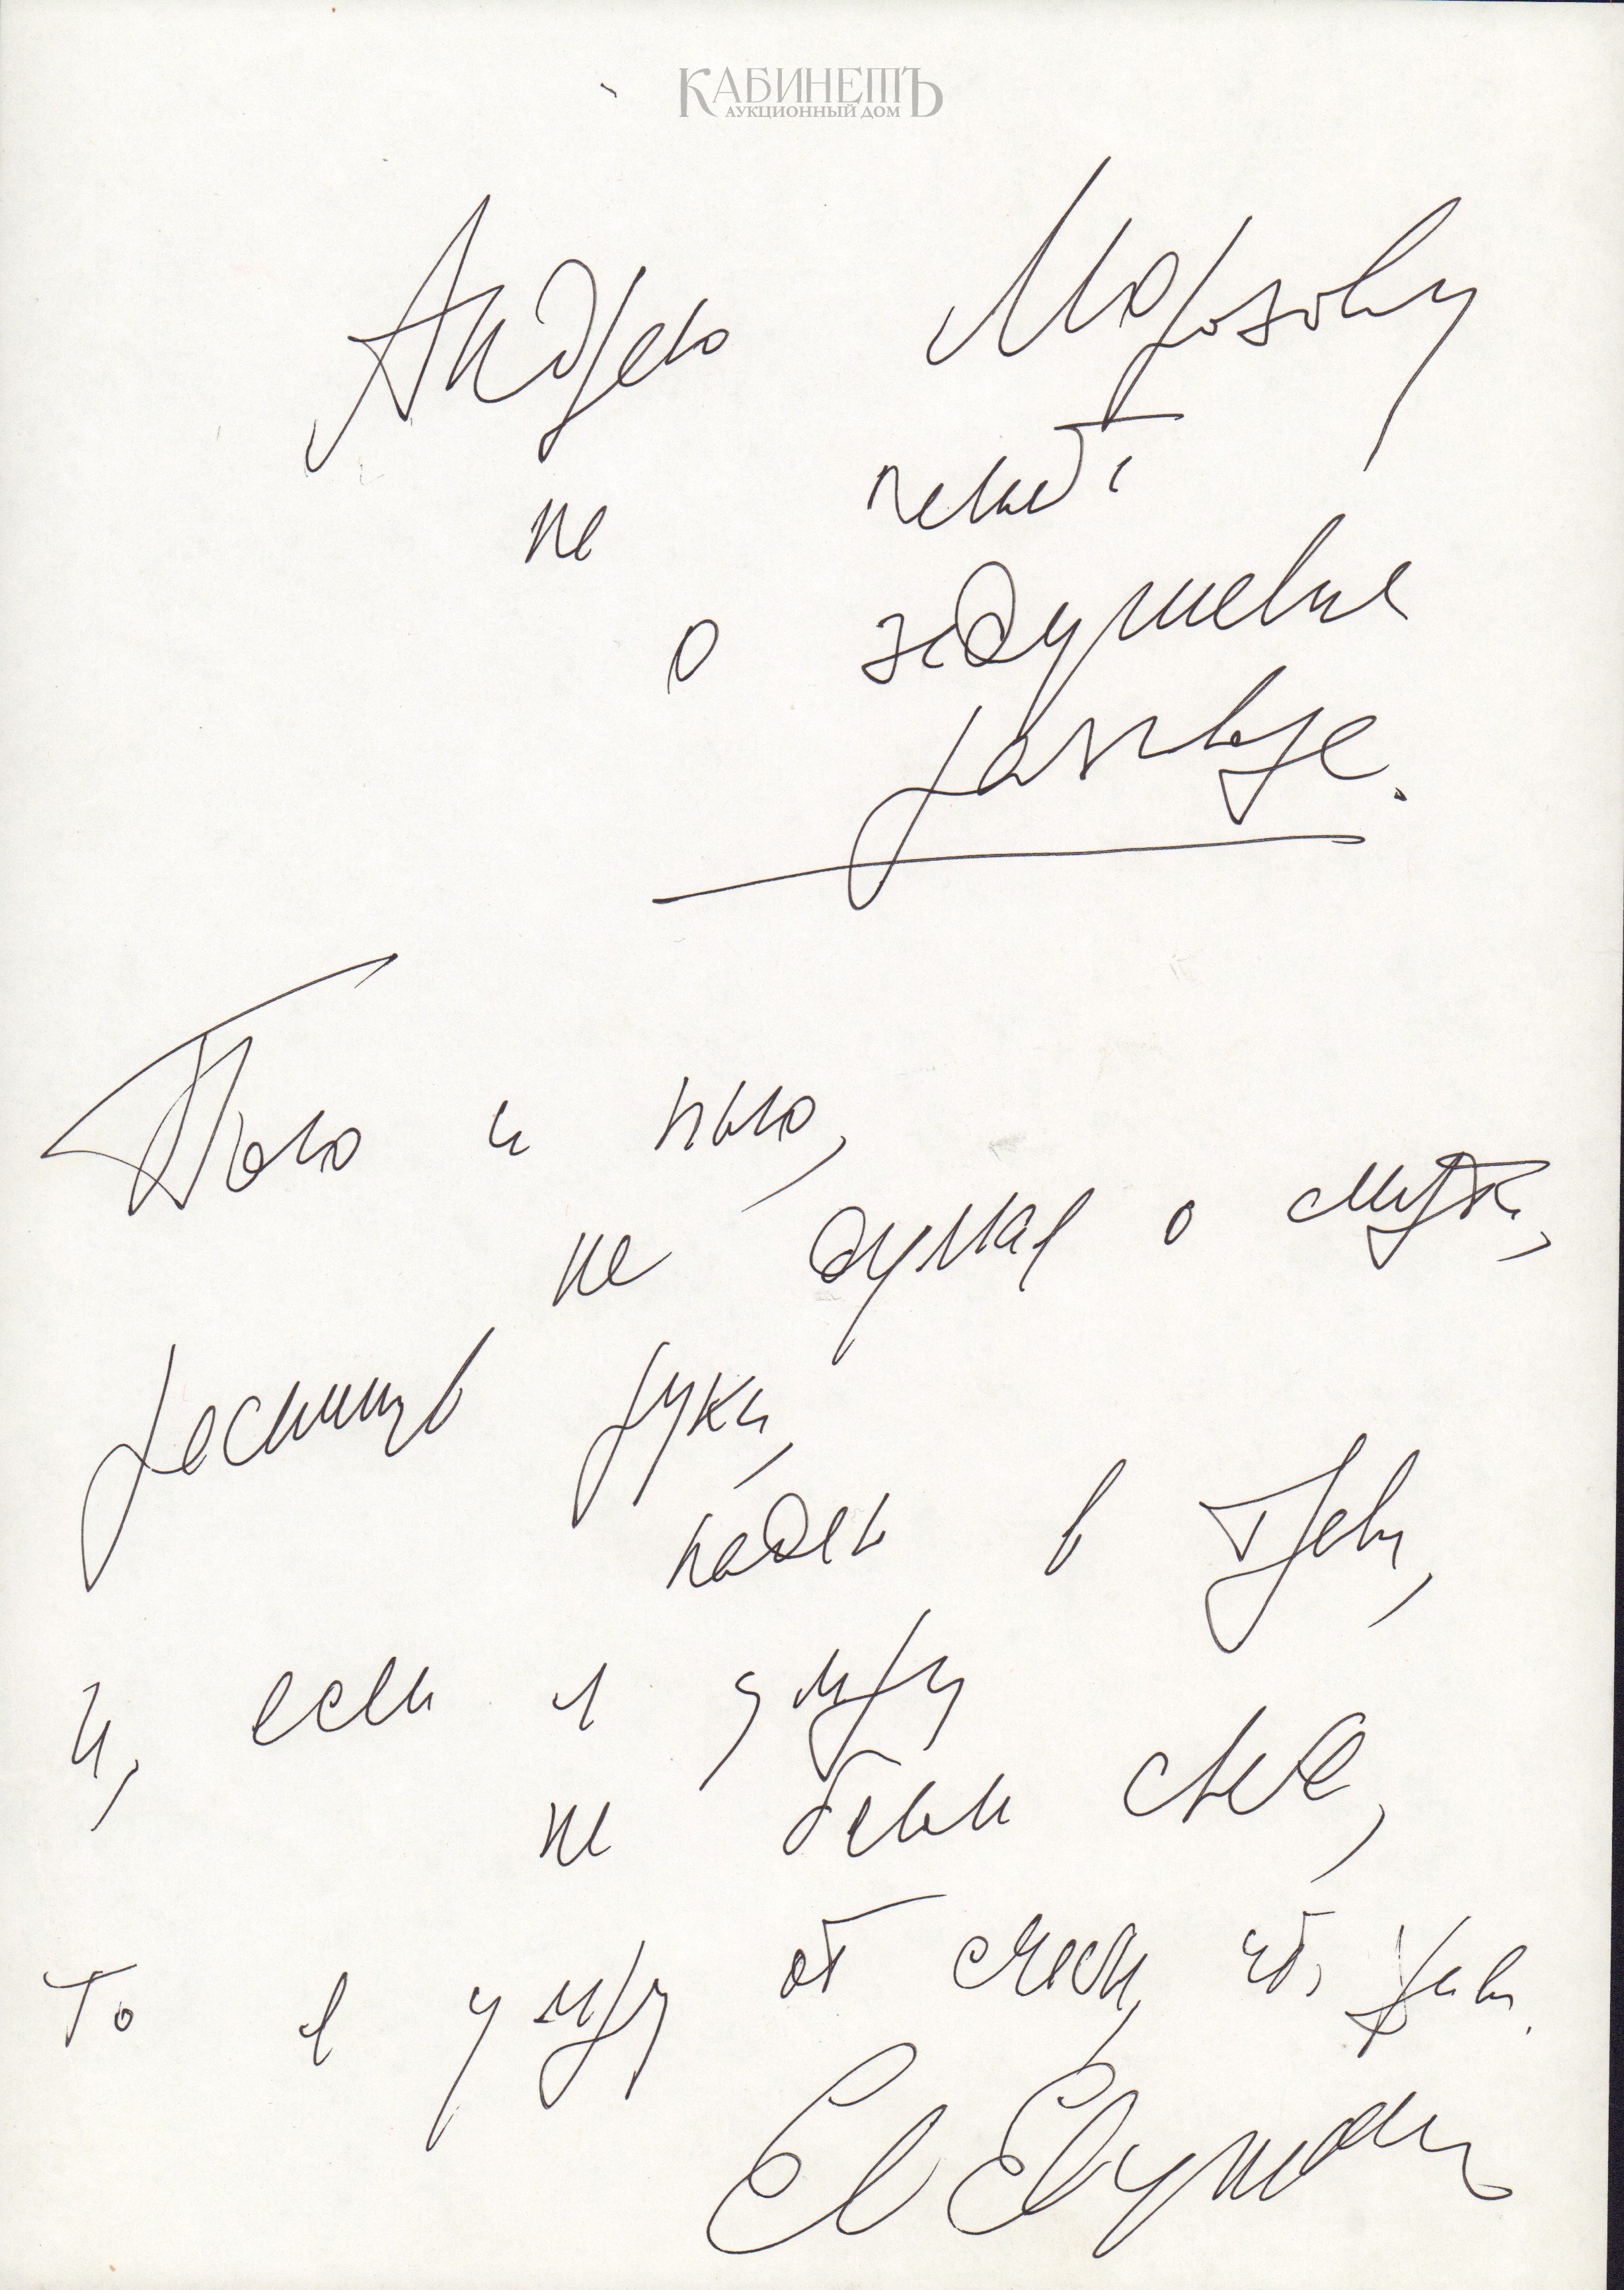 КАБИНЕТЪ
АУКЦИОННЫЙ ДОМ
Андрею Морозову
на память
о задушевном
разговоре.
Пою и пью,
не думая о смерти,
раскинув руки,
падаю в траву,
и, если я умру
на белом свете,
то я умру от счастья, что живу.
Ев Евтушенко